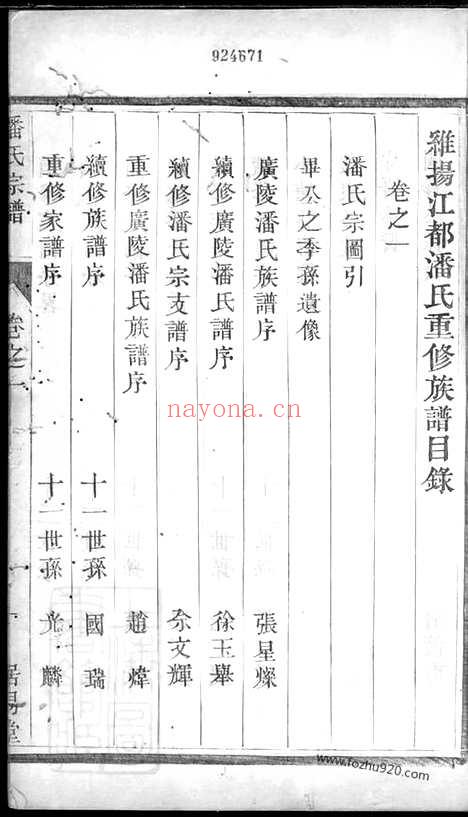 924671
維揚江都潘氏重修族譜目錄
卷之一
潘氏宗圖引
畢公之季孫遺像
廣陵潘氏族譜序 張星燦
續修廣陵潘氏譜序 徐玉㠪
續修潘氏宗支譜序 余文輝
重修廣陵潘氏族譜序 趙煒
續修族譜序 十一世孫 國瑞
重修家譜序 十一世孫 光麟
潘氏宗譜 卷之一 居易堂
nayona.cn
www.fozhu920.com